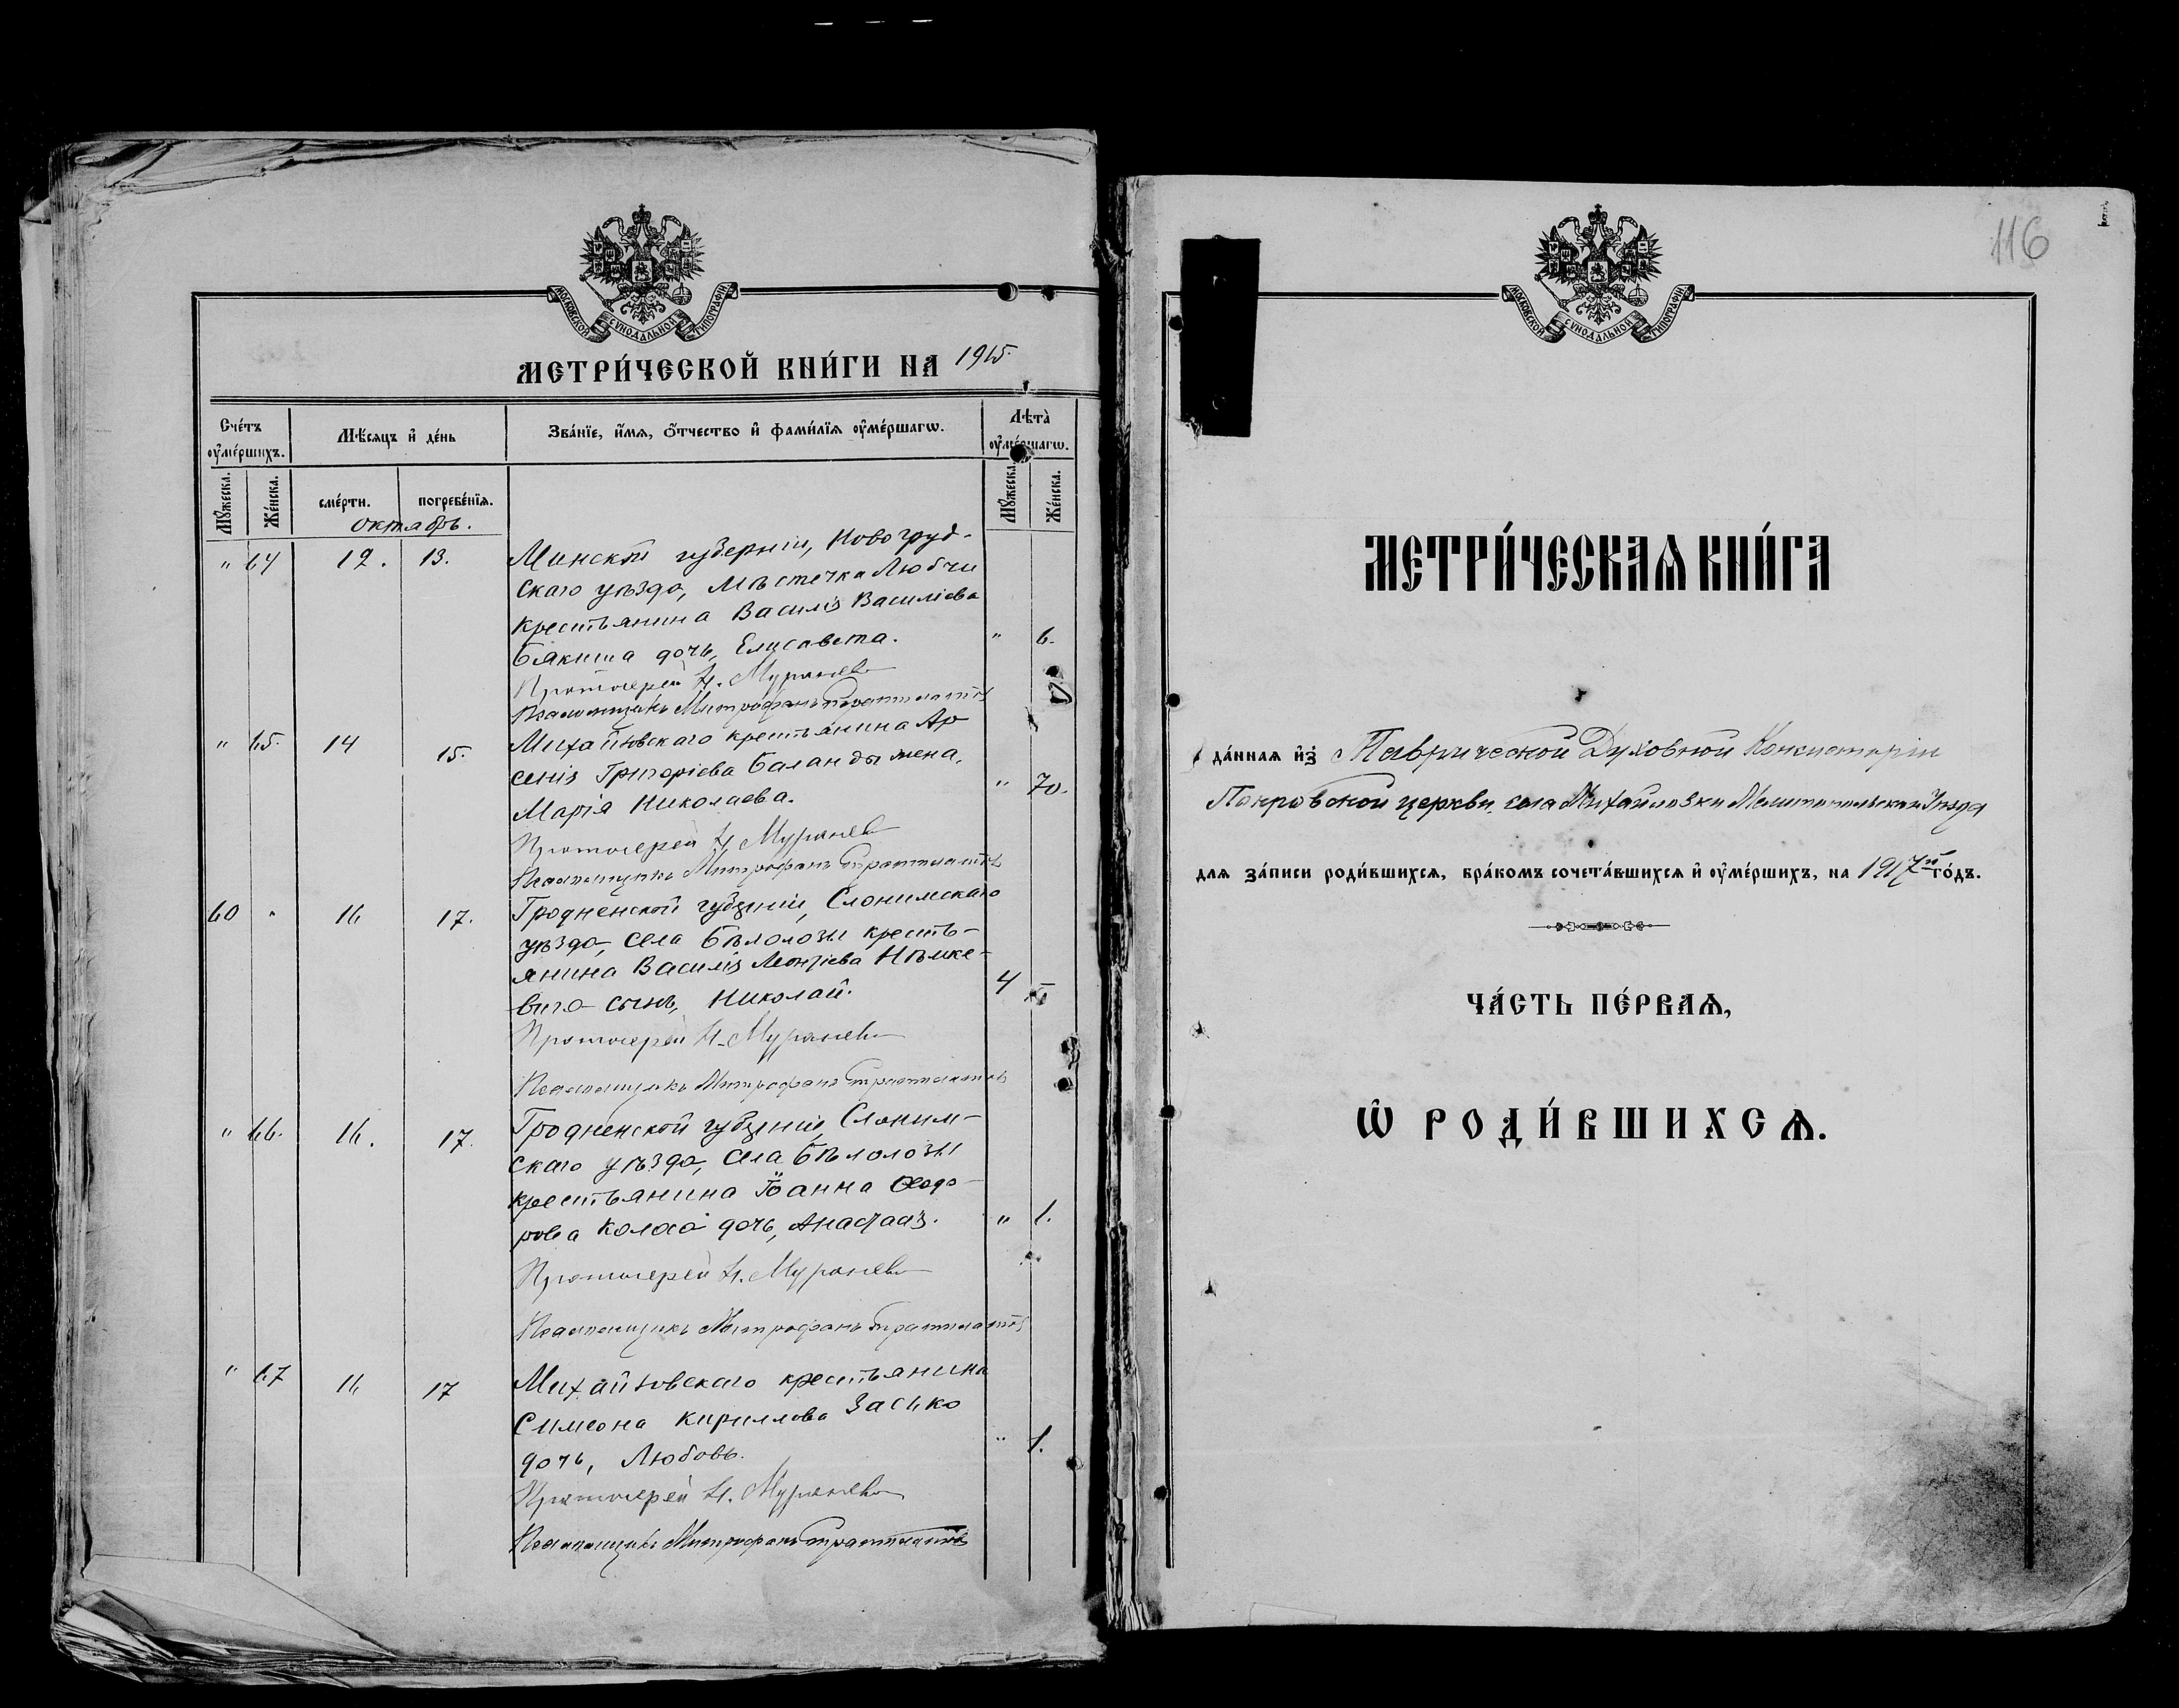 МОСКОВСКОЙ СУНОДАЛЬНОЙ ТИПОГРАФІИ
МЕТРИ́ЧЕСКОЙ КНИ́ГИ НА 1915.
Сче́тъ оу҆ме́ршихъ.
Мѣ́сяцъ и҆ де́нь
Зва́нїе, и҆́мѧ, ѻ҆́тчество и҆ фами́лїѧ оу҆ме́ршагѡ.
Лѣта̀ оу҆ме́ршагѡ.
Мꙋ́жеска. Же́нска. сме́рти. погребе́нїѧ. Мꙋ́жеска. Же́нска.
октябрь.
" 64 12. 13. Минской губерніи, Новогруд-
скаго уѣзда, мѣстечка Любчи
крестьянина Василія Василіева
дочь, Елисавета. " 6.
Протоіерей Н.
Псаломщикъ Митрофанъ
" 65. 14 15. Михайловскаго крестьянина Ар
сенія Григоріева Баланды жена,
Марія Николаева. " 70.
Протоіерей Н.
Псаломщикъ Митрофанъ
60 " 16 17. Гродненской губерніи, Слонимскаго
уѣзда, села Бѣлолозы кресть-
янина Василія Леонтіева Нѣмке-
вича сынъ, Николай. 4
Протоіерей Н.
Псаломщикъ Митрофанъ
" 66. 16. 17. Гродненской губерніи, Слоним-
скаго уѣзда, села Бѣлолозы
крестьянина Іоанна Ѳеодо-
рова дочь, " 1.
Протоіерей Н.
Псаломщикъ Митрофанъ
" 67 16 17 Михайловскаго крестьянина
Симеона Кириллова Засько
дочь, Любовь. " 1.
Протоіерей Н.
Псаломщикъ Митрофанъ
116
МОСКОВСКОЙ СУНОДАЛЬНОЙ ТИПОГРАФІИ
МЕТРИ́ЧЕСКАѦ КНИ́ГА
да́ннаѧ и҆з̾ Таврической Духовной Консисторіи
Покровской церкви села Михайловки Мелитопольскаго Уѣзда
для за́писи роди́вшихсѧ, бра́комъ сочета́вшихсѧ и҆ оу҆ме́ршихъ, на 1917й го́дъ.
ЧА́СТЬ ПЕ́РВАѦ,
Ѽ РОДИ́ВШИХСѦ.